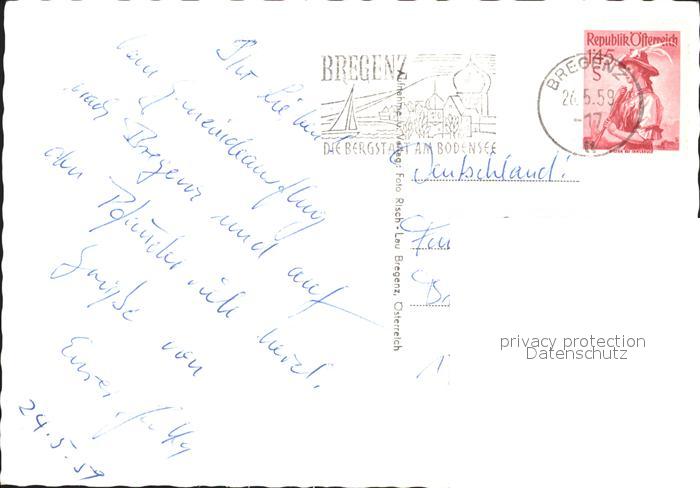 Ihr Lieben!
vom Gemeindeausflug
nach Bregenz und auf
den Pfänder viele herzl.
Grüße von
Eurer
24.5.59
BREGENZ
DIE BERGSTADT AM BODENSEE
Aufnahme u. Verlag: Foto Risch-Lau Bregenz, Österreich
Republik Österreich
1.45
S
BREGENZ
26.5.59
-17
Deutschland!
privacy protection
Datenschutz